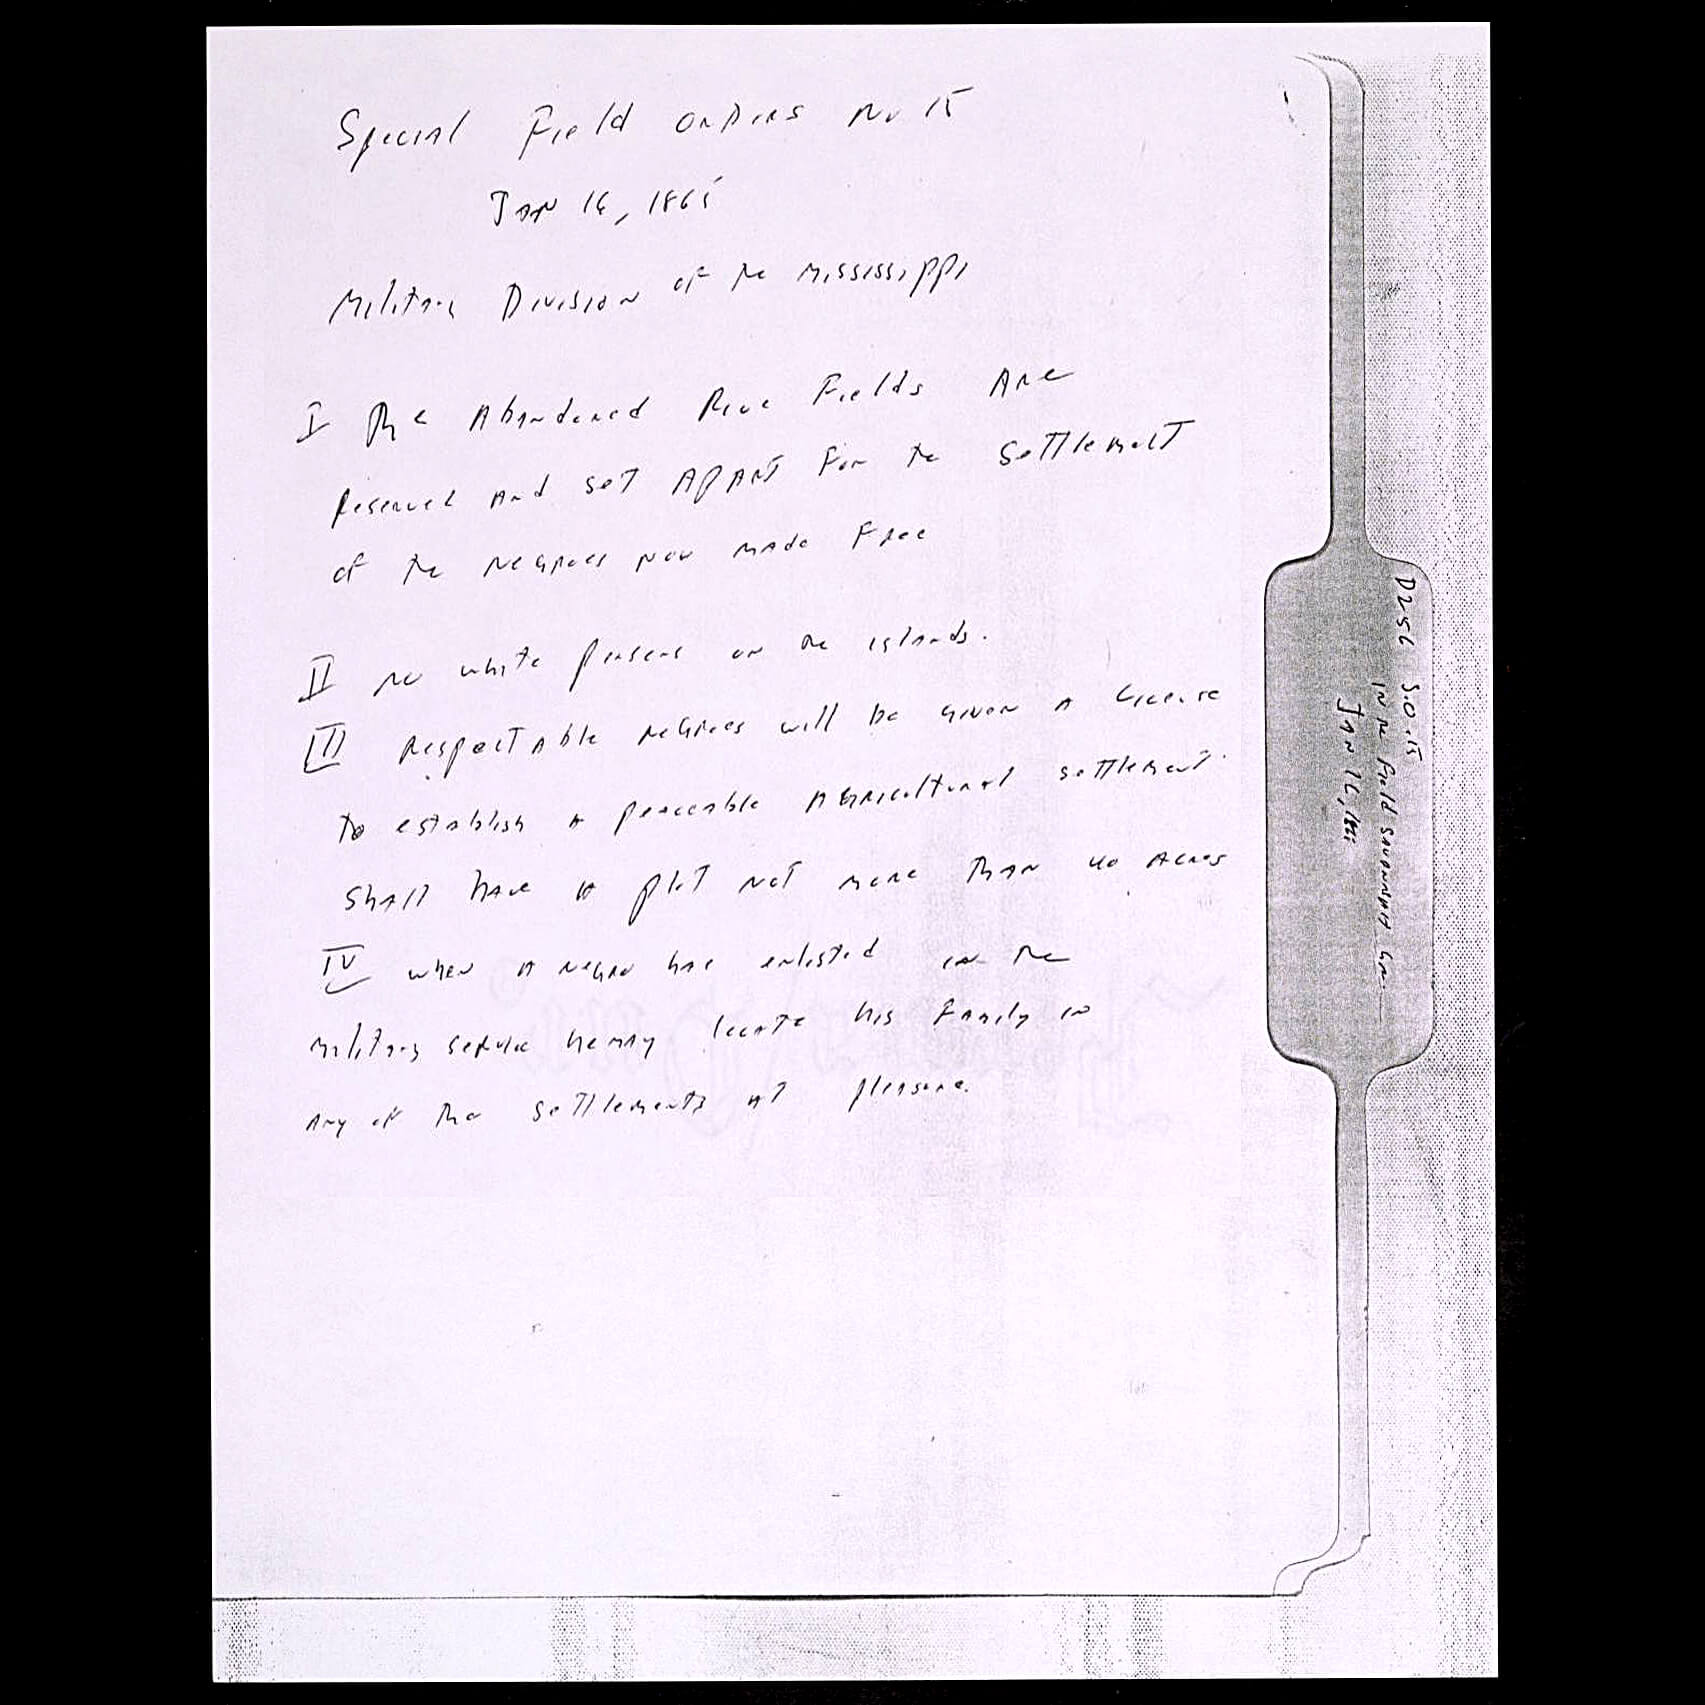 Special Field Orders No 15
Jan 16, 1865
Military Division of the Mississippi
I The Abandoned Rice Fields Are
Reserved And set APART For the settlement
of the Negroes now made Free
II no white persons on the islands.
III Respectable negroes will be given A License
to establish A peaceable Agricultural settlement.
shall have A plot not more than 40 Acres
IV when A negro has enlisted in the
military service he may locate his family in
Any of the settlements at pleasure.
D256 S.O. 15
IN the Field SAVANNAH GA.
JAN 16, 1865